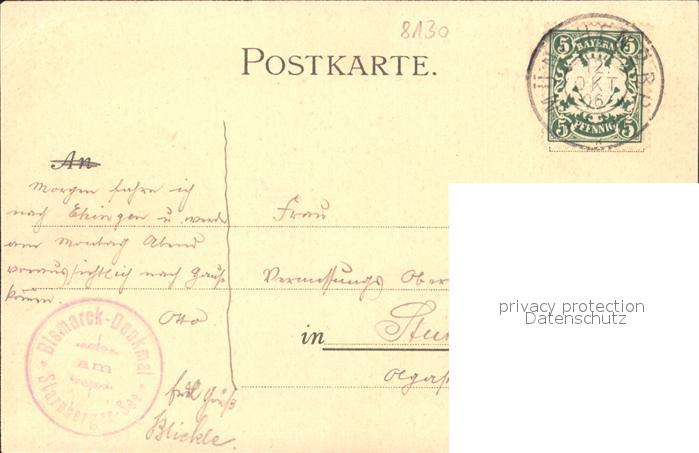 8130
POSTKARTE.
5 BAYERN 5
5 PFENNIG 5
12.
OKT
06
An
Morgen fahre ich
nach Ehingen u. werde
am Montag Abend
voraussichtlich nach Hause
kommen.
Otto
Frau
Vermessungs Ober
in Stu
Olgas
Bismarck-Denkmal
am
Starnberger-See
Gruß
Blickle.
privacy protection
Datenschutz